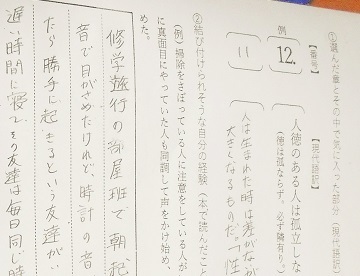 ①選んだ章とその中で気に入った部分（現代語訳
【番号】
【現代語訳】
例
12.
人徳のある人は孤立しな
（徳は孤ならず。必ず隣有り。
11
人は生まれた時は差がなが
大きくなるものだ。（性
②結び付けられそうな自分の経験（本で読んだこと
（例）掃除をさぼっている人に注意をしている人が
に真面目にやっていた人も同調して声をかけ始め、
めた。
修学旅行の部屋班で朝起
音で目がさめたけれど、時計の音
たら勝手に起きるという友達がい
遅い時間に寝て、その友達は毎日同じ時